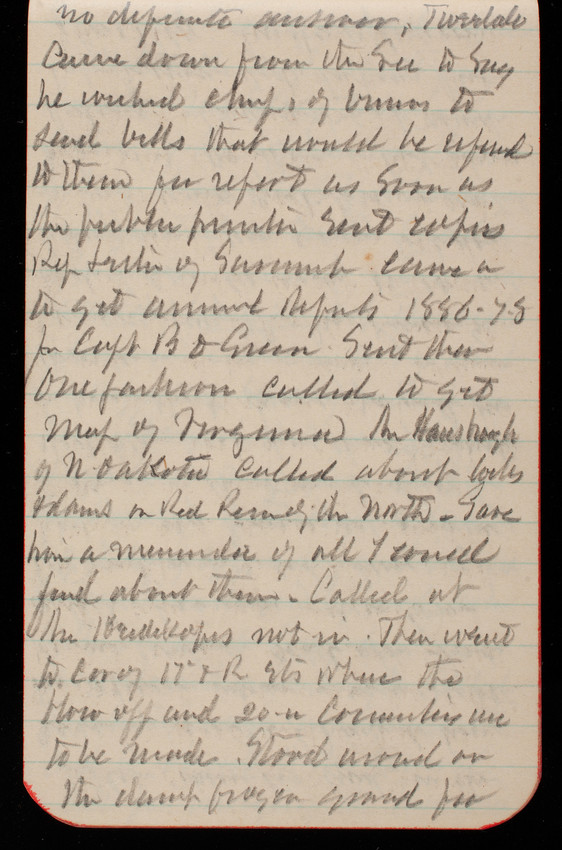 no definite answer, Tweedale
came down from the Sec to say
he wished chfs of bureaus to
send bills that would be referred
to them for report as soon as
the public printer sent copies
Rep Lester of Savannah came
to get annual Reports 1886-7-8
for Capt B D Green Sent them
One called to get
Map of Virginia Mr Hansbrough
of N Dakota called about locks
& dams on Red River of the North - Gave
him a memorandum of all I could
find about them - Called at
not in. Then went
to Cor of 17 & R Sts where the
blow off and 20-in Connections are
to be made. Stood around on
the damp frozen ground for